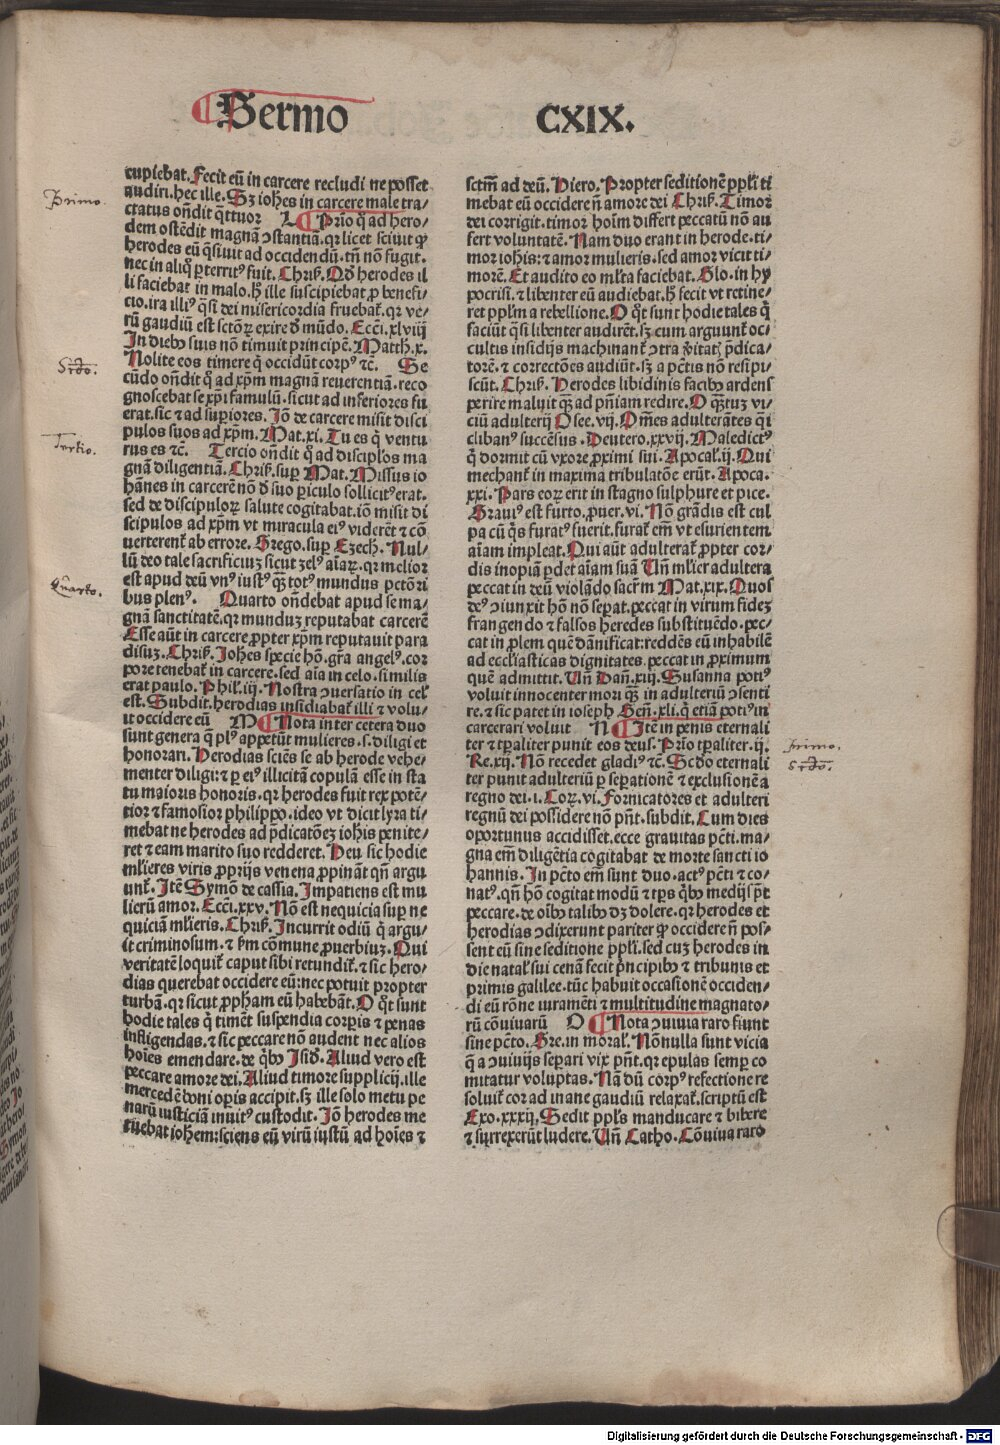 Sermo CXIX.
cupiebat. Fecit eū in carcere recludi ne posset
audiri. hec ille. Sꝫ ioħes in carcere male tra⸗
ctatus oñdit q̈ttuor L Prīo ꝙ ad hero⸗
dem ostēdit magnā ↄstantiā. qꝛ licet sciuit ꝙ
herodes eū q̈siuit ad occidendū. tñ nō fugit.
nec in aliq̊ ꝑterritꝰ fuit. Chriẜ. Qd̓ herodes il
li faciebat in malo. ħ ille suscipiebat ꝓ benefi⸗
cio. ira illiꝰ q̈si dei misericordia fruebať. qꝛ ve⸗
rū gaudiū est sctōꝝ exire d̓ mūdo. Ecci. xlviij
In diebꝰ suis nō timuit principē. Matth. x.
Nolite eos timere q̇ occidūt corpꝰ ⁊c. Se
cūdo oñdit ꝙ ad xp̄m magnā reuerentiā. reco
gnoscebat se xp̄i famulū. sicut ad inferiores fu
erat. sic ⁊ ad suꝑiores. Jō de carcere misit disci
pulos suos ad xp̄m. Mat. xi. Tu es q̇ ventu
rus es ⁊c. Tercio oñdit ꝙ ad discipl̓os ma
gnā diligentiā. Chriẜ. suꝑ Mat. Missus io
hānes in carcerē nō d̓ suo ꝑiculo sollicitꝰ erat.
sed de discipuloꝝ salute cogitabat. iō misit di
scipulos ad xp̄m vt miracula eiꝰ viderēt ⁊ cō
uerterenť ab errore. Grego. suꝑ Ezech. Nul⸗
lū deo tale sacrificiuꝫ sicut zelꝰ aīaꝝ. qꝛ melior
est apud deū vnꝰ iustꝰ q̈ꝫ totꝰ mundus pctōri
bus plenꝰ. Quarto oñdebat apud se ma⸗
gnā sanctitatē. qꝛ munduꝫ reputabat carcerē
Esse aūt in carcere ꝓpter xp̄m reputauit para
disuꝫ. Chriẜ. Joħes specie hō. gr̄a angelꝰ. cor
pore tenebať in carcere. sed aīa in celo. similis
erat paulo. Phil̓. iij. Nostra ↄuersatio in cel̓
est. Subdit. herodias insidiabať illi ⁊ volu⸗
it occidere eū M Nota inter cetera duo
sunt genera q̄ plꝰ appetūt mulieres. s. diligi et
honorari. Herodias sciēs se ab herode vehe⸗
menter diligi: ⁊ ꝑ eiꝰ illicitā copulā esse in sta
tu maioris honoris. qꝛ herodes fuit rex potē⸗
tior ⁊ famosior philippo. ideo vt dicit lyra ti⸗
mebat ne herodes ad p̄dicatōeꝫ ioħis penite⸗
ret ⁊ eam marito suo redderet. Heu sic hodie
ml̓ieres viris ꝓprijs venena ꝓpināt qñ argu
unť. Itē Symō de cassia. Impatiens est mu
lierū amor. Ecci. xxv. Nō est nequicia suꝑ ne
quiciā ml̓ieris. Chriẜ. Incurrit odiū q̇ argu⸗
it criminosum. ⁊ ẜm cōmune ꝓuerbiuꝫ. Qui
veritatē loquiť caput sibi retundiť. ⁊ sic hero⸗
dias querebat occidere eū: nec potuit propter
turbā. qꝛ sicut ꝓpħam eū habebāt. O q̊t sunt
hodie tales q̇ timēt suspendia corꝑis ⁊ penas
infligendas. ⁊ sic peccare nō audent nec alios
hoīes emendare. de q̇bꝰ Isid̓. Aliud vero est
peccare amore dei. Aliud timore supplicij. ille
mercedē boni oꝑis accipit. sꝫ ille solo metu pe
narū iusticiā inuitꝰ custodit. Jō herodes me
tuebat ioħem: sciens eū virū iustū ad hoīes ⁊
sctm̄ ad deū. Hiero. Propter seditionē ppl̓i ti
mebat eū occidere ñ amore dei Chriẜ. Timor
dei corrigit. timor hoīm differt peccatū nō au
fert voluntatē. Nam duo erant in herode. ti⸗
mor ioħis: ⁊ amor mulieris. sed amor vicit ti⸗
morē. Et audito eo ml̓ta faciebat. Glo. in hy
pocrisi. ⁊ libenter eū audiebat. ħ fecit vt retine⸗
ret ppl̓m a rebellione. O q̊t sunt hodie tales q̇
faciūt q̈si libenter audirēt. sꝫ cum arguunť oc⸗
cultis insidijs machinanť ↄtra v̓itatꝫ p̄dica⸗
torē. ⁊ correctōes audiūt. sꝫ a pctis nō resipi⸗
scūt. Chriẜ. Herodes libidinis facibꝰ ardens
perire maluit q̈ꝫ ad pñiam redire. O q̈ꝫtuꝫ vi⸗
ciū adulterij Osee. vij. Om̄es adulterātes q̈i
clibanꝰ succēsus. Deutero. xxvij. Maledictꝰ
q̇ dormit cū vxore ꝓximi sui. Apocal̓. ij. Qui
mechanť in maxima tribulatōe erūt. Apoca.
xxi. Pars eoꝝ erit in stagno sulphure et pice.
Grauiꝰ est furto. ꝓuer. vi. Nō grādis est cul
pa cū q̇s furatꝰ fuerit. furať em̄ vt esurientem
aīam impleat. Qui aūt adulterať ꝓpter cor⸗
dis inopiā ꝑdet aīam suā Vñ ml̓ier adultera
peccat in deū violādo sacr̄m Mat. xix. Quos
deꝰ ↄiunxit hō nō seꝑat. peccat in virum fideꝫ
frangendo ⁊ falsos heredes substituēdo. pec⸗
cat in ꝓlem quē dānificat: reddēs eū inhabilē
ad eccl̓iasticas dignitates. peccat in ꝓximum
quē admittit. Vñ Dañ. xiij. Susanna potiꝰ
voluit innocenter mori q̈ꝫ in adulteriū ↄsenti
re. ⁊ sic patet in ioseph Geñ. xli. q̇ etiā potiꝰ in
carcerari voluit N Itē in penis eternali
ter ⁊ tꝑaliter punit eos deus. Prīo tꝑaliter. ij.
Re. xij. Nō recedet gladiꝰ ⁊c. Scd̓o eternali
ter punit adulteriū ꝑ seꝑationē ⁊ exclusionē a
regno dei. i. Coꝝ. vi. Fornicatores et adulteri
regnū dei possidere nō pñt. subdit. Cum dies
oportunus accidisset. ecce grauitas pcti. ma⸗
gna em̄ diligētia cogitabat de morte sancti io
hannis. In pcto em̄ sunt duo. actꝰ pcti ⁊ co⸗
natꝰ. qñ hō cogitat modū ⁊ tꝑs q̇bꝰ medijs p̄t
peccare. de oībꝰ talibꝰ dꝫ dolere. qꝛ herodes et
herodias ↄdixerunt pariter ꝙ occidere ñ pos⸗
sent eū sine seditione ppl̓i. sed cuꝫ herodes in
die natal̓ sui cenā fecit p̓ncipibꝰ ⁊ tribunis et
primis galilee. tūc habuit occasionē occiden⸗
di eū rōne iuramēti ⁊ multitudine magnato⸗
rū cōuiuarū O Nota ↄuiuia raro fiunt
sine pcto. Gre. in moral̓. Nōnulla sunt vicia
q̄ a ↄuiuijs seꝑari vix pñt. qꝛ epulas semꝑ co
mitatur voluptas. Nā dū corpꝰ refectione re
soluiť cor ad inane gaudiū relaxať. scriptū est
Exo. xxxij. Sedit ppl̓s manducare ⁊ bibere
⁊ surrexerūt ludere. Vñ Catho. Cōuiua raro
Primo.
Scďo.
Tertio.
Quarto.
primo.
scďo.
Digitalisierung gefördert durch die Deutsche Forschungsgemeinschaft - DFG